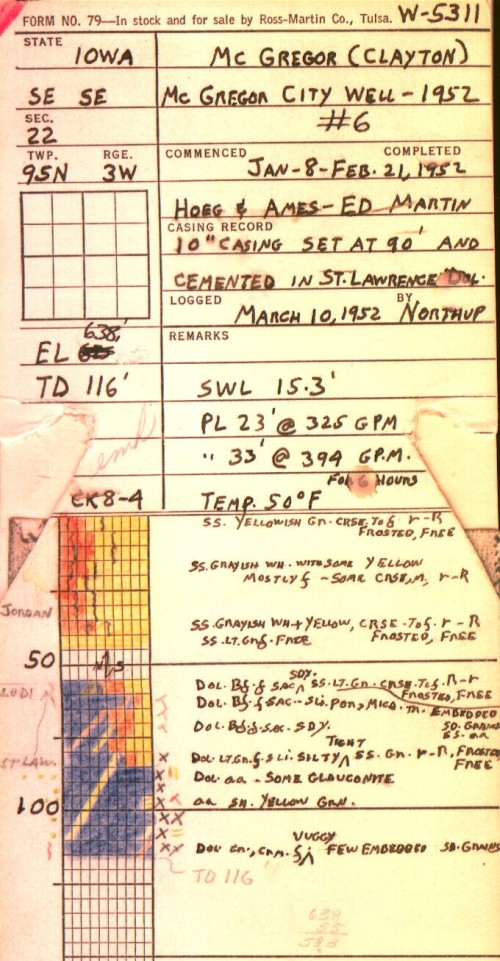 FORM NO. 79—In stock and for sale by Ross-Martin Co., Tulsa. W-5311
STATE IOWA
MC GREGOR (CLAYTON)
SE SE
MC GREGOR CITY WELL - 1952
#6
SEC. 22
TWP. RGE.
95N 3W
COMMENCED COMPLETED
JAN-8-FEB. 21, 1952
HOEG & AMES - ED MARTIN
CASING RECORD
10" CASING SET AT 90' AND
CEMENTED IN ST. LAWRENCE DOL.
LOGGED BY
MARCH 10, 1952 NORTHUP
REMARKS
638'
EL
TD 116'
SWL 15.3'
PL 23' @ 325 GPM
" 33' @ 394 G.P.M.
FOR 6 HOURS
CK 8-4
TEMP. 50°F
SS. YELLOWISH Gn. CRSE. To f r-R
FROSTED, FREE
SS. GRAYISH WH. WITH SOME YELLOW
MOSTLY f - SOME CRSE, M, r-R
JORDAN
SS. GRAYISH WH + YELLOW, CRSE. To f. r-R
SS. LT. Gn f. FREE FROSTED, FREE
50
N/S
SDY.
DOL. Bf. f SAC ^ SS. LT. Gn. CRSE. To f. R-r
LODI
FROSTED, FREE
DOL. Bf. f SAC - SLI. POR, MICA. TR. EMBEDDED
SD. GRAINS
DOL. Bf. f. SAC. SDY. SS. aa
TIGHT
ST LAW.
DOL. LT. Gn. f. SLI. SILTY ^ SS. Gn. r-R, FROSTED
FREE
DOL. aa - SOME GLAUCONITE
100
aa SH. YELLOW GRN.
VUGGY
FEW EMBEDDED SD. GRAINS
TD 116'
638
55
583